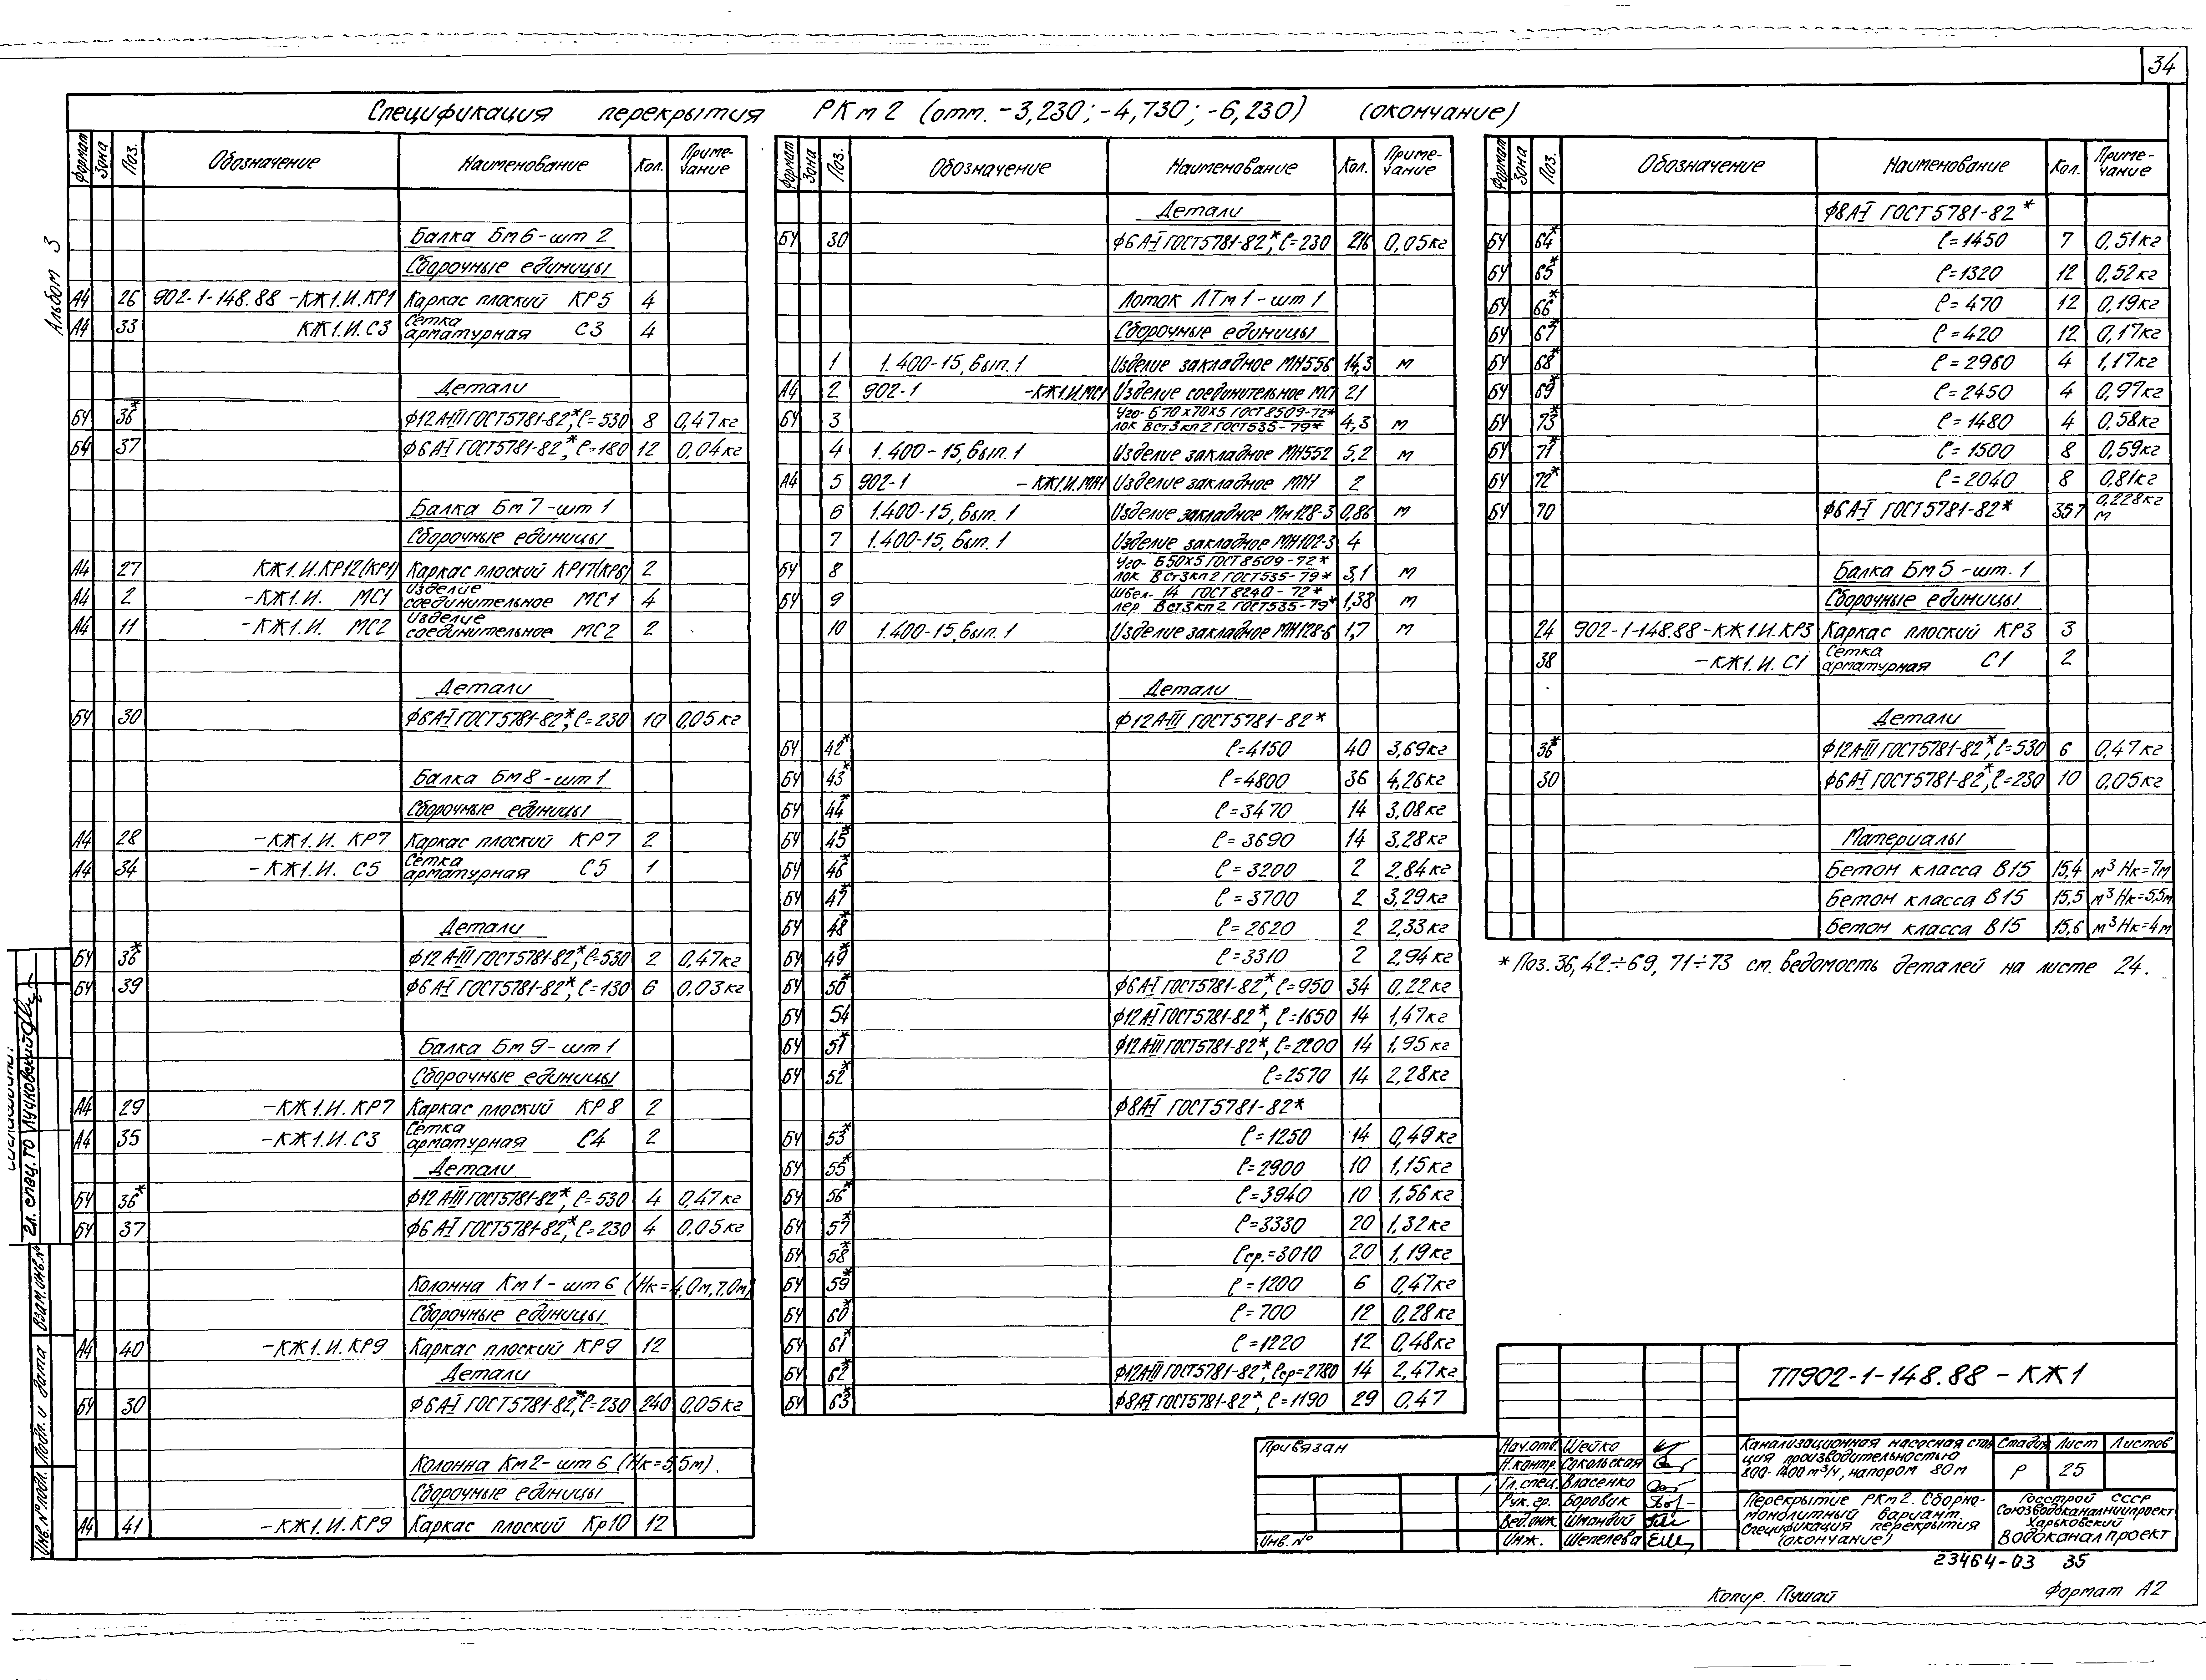 34
Спецификация перекрытия РКм2 (отм. -3,230; -4,730; -6,230) (окончание)
Альбом 3
Формат Зона Поз. Обозначение Наименование Кол. Приме-чание
Балка Бм6-шт 2
Сборочные единицы
А4 26 902-1-148.88 -КЖ1.И.КР1 Каркас плоский КР5 4
А4 33 КЖ1.И.С3 Сетка арматурная С3 4
Детали
БЧ 36* Ф12А-III ГОСТ5781-82*, ℓ=530 8 0,47кг
БЧ 37 Ф6А-I ГОСТ5781-82*, ℓ=180 12 0,04кг
Балка Бм7-шт 1
Сборочные единицы
А4 27 КЖ1.И.КР12(КР1) Каркас плоский КР17(КР6) 2
А4 2 -КЖ1.И. МС1 Изделие соединительное МС1 4
А4 11 -КЖ1.И. МС2 Изделие соединительное МС2 2
Детали
БЧ 30 Ф6А-I ГОСТ5781-82*, ℓ=230 10 0,05кг
Балка Бм8-шт 1
Сборочные единицы
А4 28 -КЖ1.И. КР7 Каркас плоский КР7 2
А4 34 -КЖ1.И. С5 Сетка арматурная С5 1
Детали
БЧ 36* Ф12А-III ГОСТ5781-82*, ℓ=530 2 0,47кг
БЧ 39 Ф6А-I ГОСТ5781-82*, ℓ=130 6 0,03кг
Балка Бм9-шт 1
Сборочные единицы
А4 29 -КЖ1.И.КР7 Каркас плоский КР8 2
А4 35 -КЖ1.И.С3 Сетка арматурная С4 2
Детали
БЧ 36* Ф12А-III ГОСТ5781-82*, ℓ=530 4 0,47кг
БЧ 37 Ф6А-I ГОСТ5781-82*, ℓ=230 4 0,05кг
Колонна Км1-шт 6 (Нк=4,0м,7,0м)
Сборочные единицы
А4 40 -КЖ1.И.КР9 Каркас плоский КР9 12
Детали
БЧ 30 Ф6А-I ГОСТ5781-82*, ℓ=230 240 0,05кг
Колонна Км2-шт 6 (Нк=5,5м).
Сборочные единицы
А4 41 -КЖ1.И.КР9 Каркас плоский Кр10 12
Формат Зона Поз. Обозначение Наименование Кол. Приме-чание
Детали
БЧ 30 Ф6А-I ГОСТ5781-82*, ℓ=230 216 0,05кг
Лоток ЛТм1-шт 1
Сборочные единицы
1 1.400-15, вып.1 Изделие закладное МН556 14,3 м
А4 2 902-1 -КЖ1.И.МС1 Изделие соединительное МС1 21
БЧ 3 Уго-лок Б70х70х5 ГОСТ8509-72* ВСт3кп2 ГОСТ535-79* 4,3 м
4 1.400-15, вып.1 Изделие закладное МН552 5,2 м
А4 5 902-1 -КЖ1.И.МН1 Изделие закладное МН1 2
6 1.400-15, вып.1 Изделие закладное Мн128-3 0,86 м
7 1.400-15, вып.1 Изделие закладное МН102-3 4
БЧ 8 Уго-лок Б50х5 ГОСТ8509-72* ВСт3кп2 ГОСТ535-79* 3,1 м
БЧ 9 Швел-лер 14 ГОСТ8240-72* ВСт3кп2 ГОСТ535-79* 1,38 м
10 1.400-15, вып.1 Изделие закладное МН128-6 1,7 м
Детали
Ф12А-III ГОСТ5781-82*
БЧ 42* ℓ=4150 40 3,69кг
БЧ 43* ℓ=4800 36 4,26кг
БЧ 44* ℓ=3470 14 3,08кг
БЧ 45* ℓ=3690 14 3,28кг
БЧ 46* ℓ=3200 2 2,84кг
БЧ 47* ℓ=3700 2 3,29кг
БЧ 48* ℓ=2620 2 2,33кг
БЧ 49* ℓ=3310 2 2,94кг
БЧ 50* Ф6А-I ГОСТ5781-82*, ℓ=950 34 0,22кг
БЧ 54 Ф12А-I ГОСТ5781-82*, ℓ=1650 14 1,47кг
БЧ 51* Ф12А-III ГОСТ5781-82*, ℓ=2200 14 1,95кг
БЧ 52* ℓ=2570 14 2,28кг
Ф8А-I ГОСТ5781-82*
БЧ 53* ℓ=1250 14 0,49кг
БЧ 55* ℓ=2900 10 1,15кг
БЧ 56* ℓ=3940 10 1,56кг
БЧ 57* ℓ=3330 20 1,32кг
БЧ 58* ℓср.=3010 20 1,19кг
БЧ 59* ℓ=1200 6 0,47кг
БЧ 60* ℓ=700 12 0,28кг
БЧ 61* ℓ=1220 12 0,48кг
БЧ 62* Ф12А-III ГОСТ5781-82*, ℓср=2780 14 2,47кг
БЧ 63* Ф8А-I ГОСТ5781-82*, ℓ=1190 29 0,47
Формат Зона Поз. Обозначение Наименование Кол. Приме-чание
Ф8А-I ГОСТ5781-82*
БЧ 64* ℓ=1450 7 0,51кг
БЧ 65* ℓ=1320 12 0,52кг
БЧ 66* ℓ=470 12 0,19кг
БЧ 67* ℓ=420 12 0,17кг
БЧ 68* ℓ=2960 4 1,17кг
БЧ 69* ℓ=2450 4 0,97кг
БЧ 73* ℓ=1480 4 0,58кг
БЧ 71* ℓ=1500 8 0,59кг
БЧ 72* ℓ=2040 8 0,81кг
БЧ 70 Ф6А-I ГОСТ5781-82* 357 0,228кг м
Балка Бм5-шт. 1
Сборочные единицы
24 902-1-148.88-КЖ1.И.КР3 Каркас плоский КР3 3
38 -КЖ1.И.С1 Сетка арматурная С1 2
Детали
36* Ф12А-III ГОСТ5781-82*, ℓ=530 6 0,47кг
30 Ф6А-I ГОСТ5781-82*, ℓ=230 10 0,05кг
Материалы
Бетон класса В15 15,4 м³ Нк=7м
Бетон класса В15 15,5 м³ Нк=5,5м
Бетон класса В15 15,6 м³ Нк=4м
* Поз. 36, 42÷69, 71÷73 см. ведомость деталей на листе 24.
Гл. спец. ТО Лучковский
Взам. инв. №
Подп. и дата
Инв. № подл.
Привязан
Инв. №
Нач.отд. Шейко
Н.контр. Сокольская
Гл.спец. Власенко
Рук.гр. Боровик
Вед.инж. Шмандий
Инж. Шепелева
ТП902-1-148.88 - КЖ1
Канализационная насосная стан
ция производительностью
800-1400 м³/ч, напором 80м
Стадия Лист Листов
Р 25
Перекрытие РКм2. Сборно-
монолитный вариант.
Спецификация перекрытия
(окончание)
Госстрой СССР
Союзводоканалниипроект
Харьковский
Водоканалпроект
23464-03 35
Копир. Пушай
Формат А2